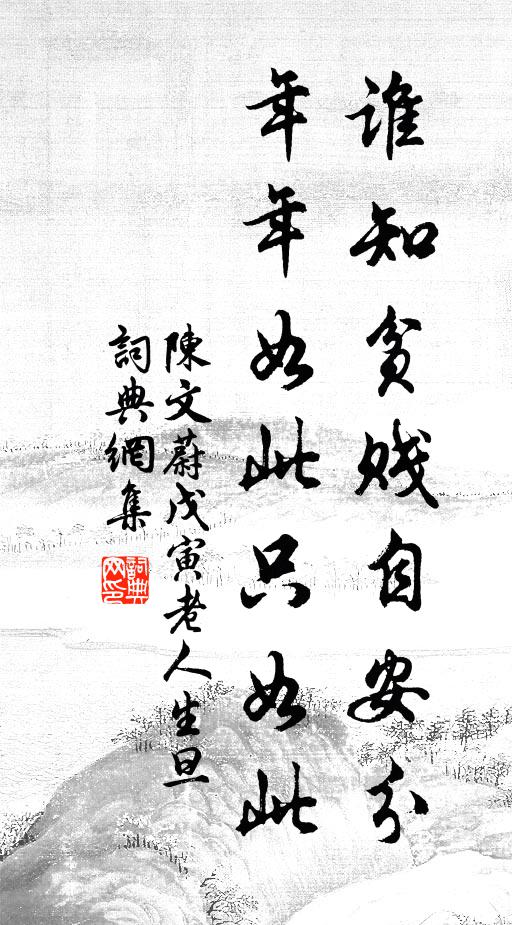 誰知貧賤自安分
年年如此只如此
陳文蔚戊寅老人生旦
詞典網集
詞典
网印